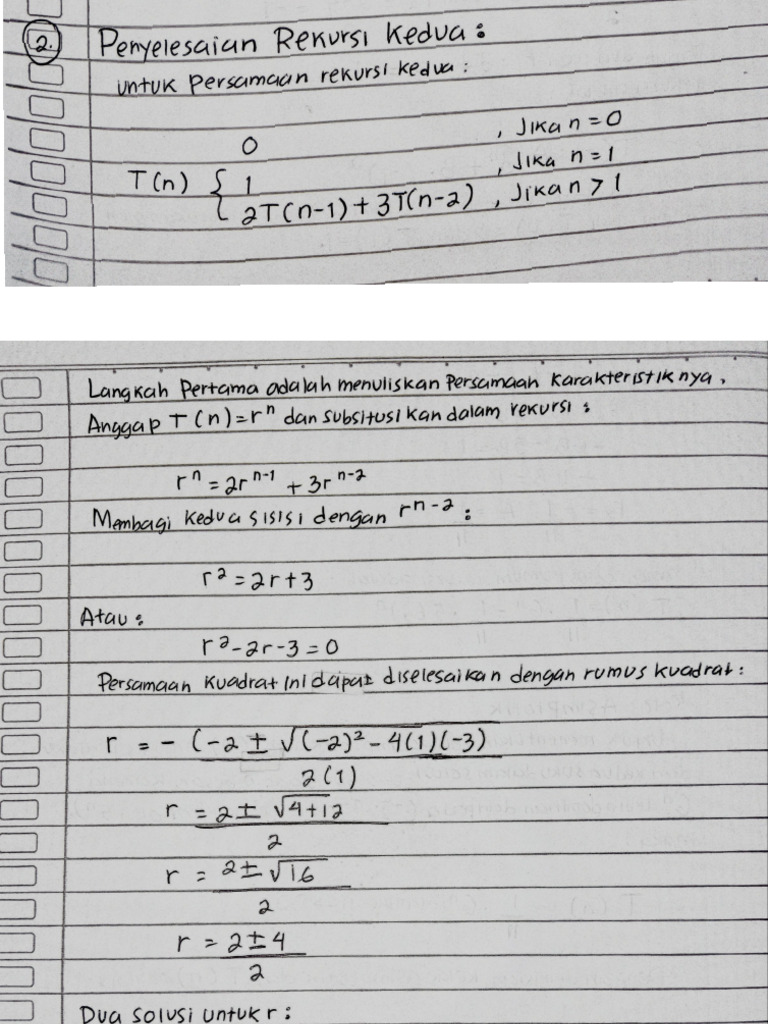 2. Penyelesaian Rekursi Kedua:
untuk persamaan rekursi kedua:
0 , Jika n = 0
T(n) { 1 , Jika n = 1
2T(n-1) + 3T(n-2) , Jika n > 1
Langkah Pertama adalah menuliskan Persamaan Karakteristiknya.
Anggap T(n) = rⁿ dan subsitusikan dalam rekursi:
rⁿ = 2rⁿ⁻¹ + 3rⁿ⁻²
Membagi kedua sisisi dengan rⁿ⁻²:
r² = 2r + 3
Atau:
r² - 2r - 3 = 0
Persamaan Kuadrat ini dapat diselesaikan dengan rumus kuadrat:
r = - (-2 ± √(-2)² - 4(1)(-3)
2(1)
r = 2 ± √4+12
2
r = 2 ± √16
2
r = 2 ± 4
2
Dua solusi untuk r: